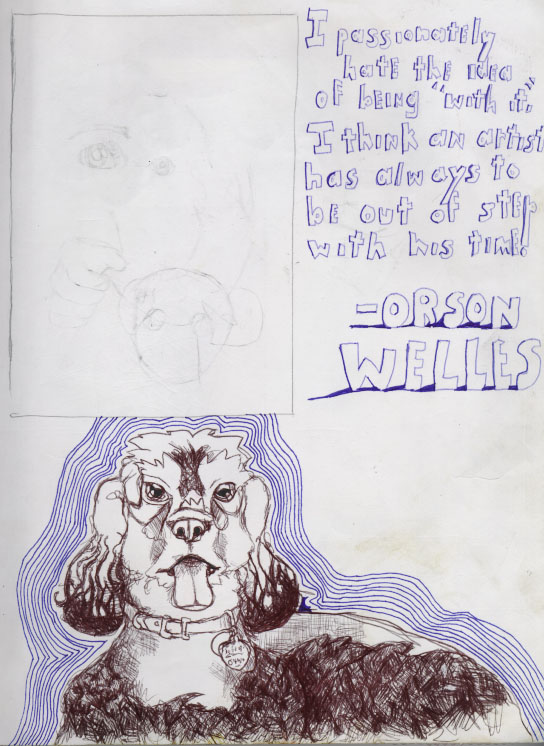 I passionately
hate the idea
of being "with it,"
I think an artist
has always to
be out of step
with his time!
-ORSON
WELLES